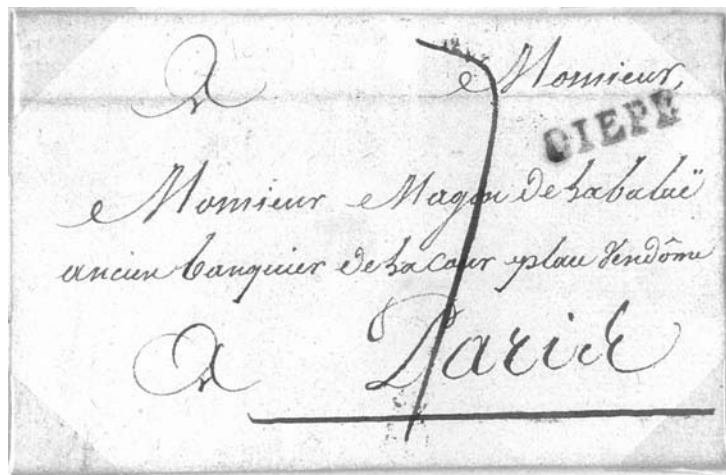 A Monsieur,
DIEPE
Monsieur Magon de Labalüe
ancien banquier de La Cour place Vendôme
A Paris
7